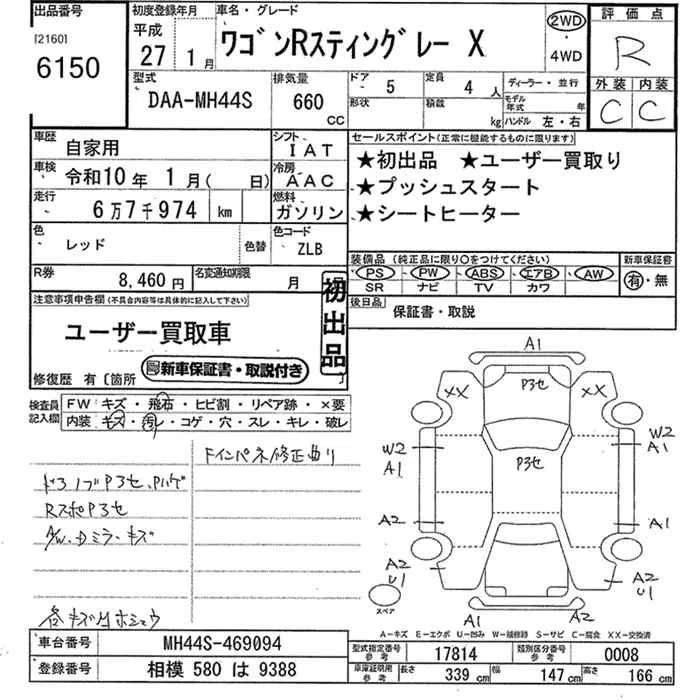 出品番号 初度登録年月 車名・グレード 2WD 評価点
[2160] 平成 ワゴンRスティングレー X ・ R
6150 27 1月 4WD
型式 排気量 ドア 5 定員 4人 ディーラー・並行 外装 内装
DAA-MH44S 660 CC 形状 積載 kg モデル年式 年 C C
ハンドル 左・右
車歴 自家用 シフト IAT セールスポイント(正常に機能するものに限ります)
車検 令和10年 1月( 日) 冷房 AAC ★初出品 ★ユーザー買取り
走行 6万7千974 km 燃料 ガソリン ★プッシュスタート
★シートヒーター
色 レッド 色替 色コード ZLB
装備品(純正品に限り○をつけてください) 新車保証書
PS PW ABS エアB AW 有・無
SR ナビ TV カワ
R券 8,460円 名変通知期限 月
後日品 保証書・取説
注意事項申告欄(不具合内容等は具体的に記入して下さい) 初出品
ユーザー買取車
新車保証書・取説付き
修復歴 有〔箇所 〕
検査員記入欄 FW キズ・飛石・ヒビ割・リペア跡・×要
内装 キズ・汚レ・コゲ・穴・スレ・キレ・破レ
FインパネP修正曲り
ドアノブP3セ、Pハゲ
RスポP3セ
A/W、Dミラーキズ
各キズ凹ホショウ
A1
XX P3セ XX
W2 A1 P3セ W2 A1
A2 A1
A2 U1 A2 U1
スペア A1 A2
A-キズ E-エクボ U-凹み W-補修跡 S-サビ C-腐食 XX-交換済
車台番号 MH44S-469094 型式指定番号 参考 17814 類別区分番号 参考 0008
登録番号 相模 580 は 9388 車庫証明用 参考 長さ 339 cm 幅 147 cm 高さ 166 cm